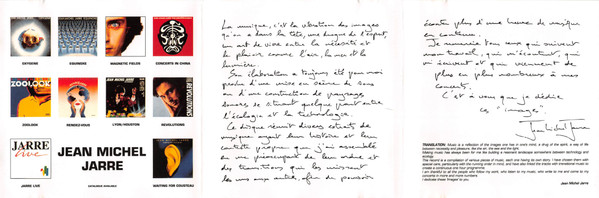 OXYGENE
EQUINOXE
MAGNETIC FIELDS
CONCERTS IN CHINA
ZOOLOOK
REVOLUTIONS
ZOOLOOK
RENDEZ-VOUS
LYON/HOUSTON
REVOLUTIONS
JARRE
live
JARRE LIVE
JEAN MICHEL
JARRE
CATALOGUE AVAILABLE
WAITING FOR COUSTEAU
La musique, c'est la vibration des images
qu'on a dans la tête, une drogue de l'esprit,
un art de vivre entre la nécessité et
le plaisir, comme l'air, la mer et la
lumière.
Son élaboration a toujours été pour moi
proche d'une mise en scène de sons
ou d'une construction de paysages
sonores se situant quelque part entre
l'écologie et la technologie.
Ce disque réunit divers extraits de
musique ayant leur histoire et leur
contexte propre que j'ai assemblés
en me préoccupant de leur ordre et
des transitions qui les unissent
les uns aux autres, afin de pouvoir
écouter plus d'une heure de musique
en continu.
Je remercie tous ceux qui suivent
mon travail, qui m'écoutent, qui
m'écrivent et qui viennent de
plus en plus nombreux à mes
concerts.
C'est à vous que je dédie
ces "images".
Jean Michel Jarre
TRANSLATION: Music is a reflection of the images one has in one's mind, a drug of the spirit, a way of life
between necessity and pleasure, like the air, the sea and the light.
Making music has always been for me like building a resonant landscape somewhere between technology and
ecology.
This record is a compilation of various pieces of music, each one having its own story. I have chosen them with
special care, particularly with the running order in mind, and have also linked the tracks with transitional music to
create a continuous one hour programme.
I am thankful to all the people who follow my work, who listen to my music, who write to me and come to my
concerts in more and more numbers.
I dedicate these 'images' to you.
Jean Michel Jarre